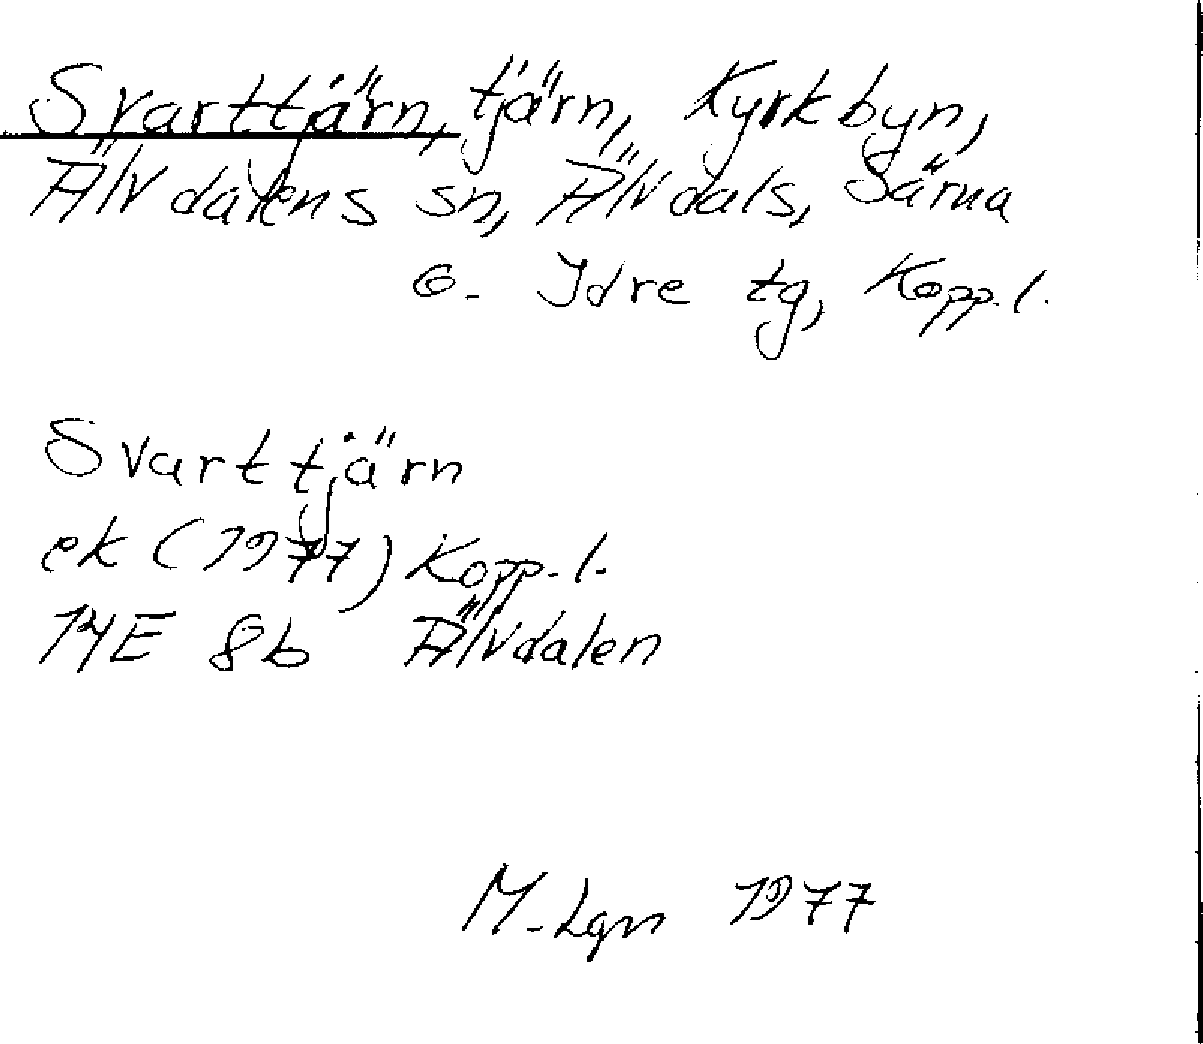 Svarttjärn, tjärn, Kyrkbyn,
Älvdalens sn, Älvdals, Särna
o. Idre tg, Kopp. l.
Svarttjärn
ek (1977) Kopp. l.
14E 8b Älvdalen
M. Lgn 1977